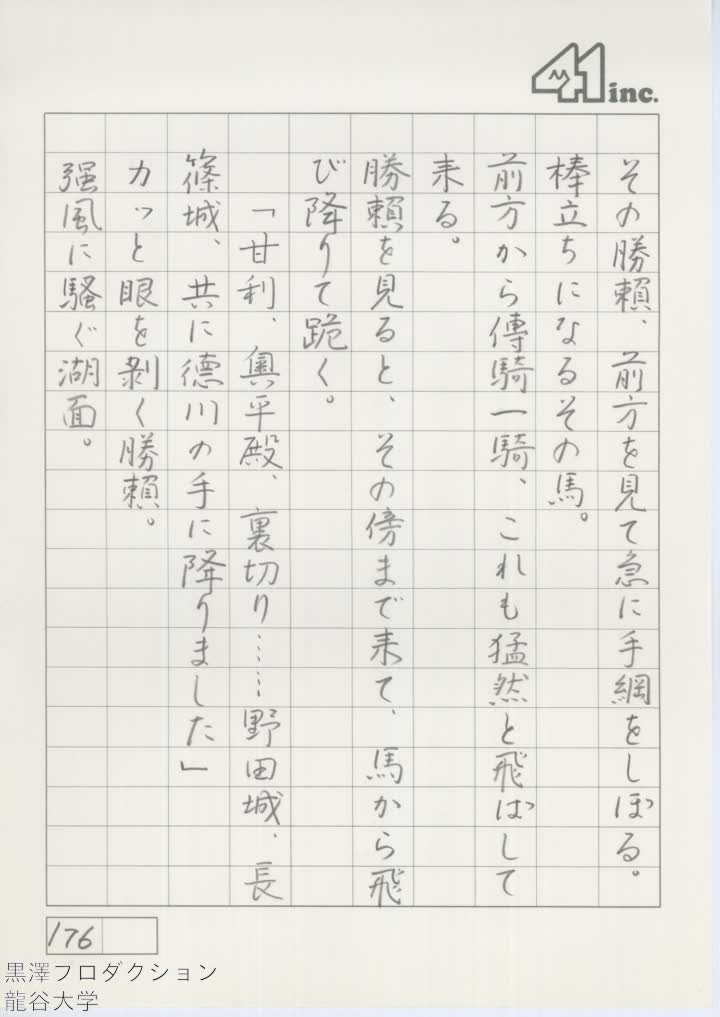 41 inc.
その勝頼、前方を見て急に手綱をしぼる。
棒立ちになるその馬。
前方から傳騎一騎、これも猛然と飛ばして
来る。
勝頼を見ると、その傍まで来て、馬から飛
び降りて跪く。
「甘利、奥平殿、裏切り……野田城、長
篠城、共に徳川の手に降りました」
カッと眼を剥く勝頼。
强風に騒ぐ湖面。
176
黒澤フロダクション
龍谷大学